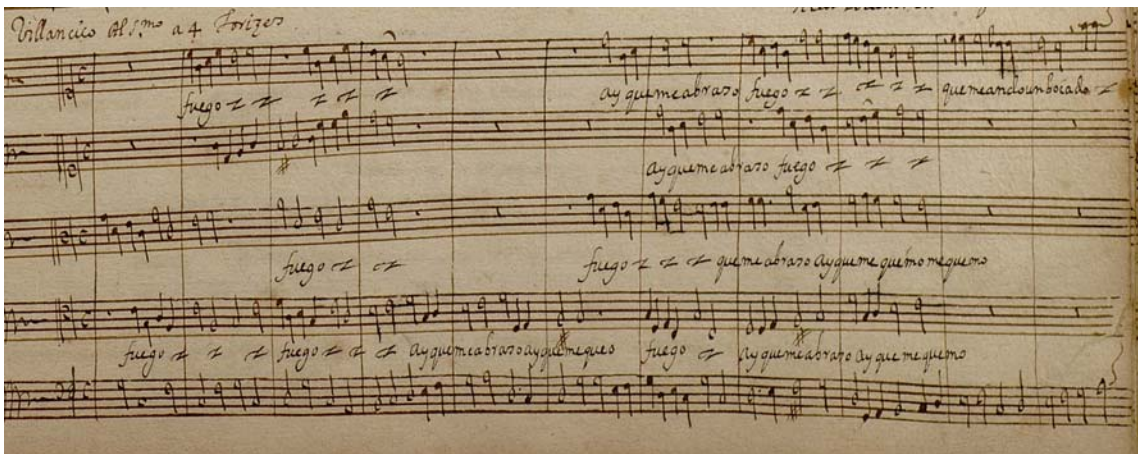 Villancico Al S.mo a 4 Torizes
fuego z z z z z ay que me abraso fuego z z z z z quemando un bocado z
ay que me abraso fuego z z z
fuego z z fuego z z z que me abraso ay que me quemo me quemo
fuego z z z fuego z z z ay que me abraso ay que me queo fuego z ay que me abraso ay que me quemo